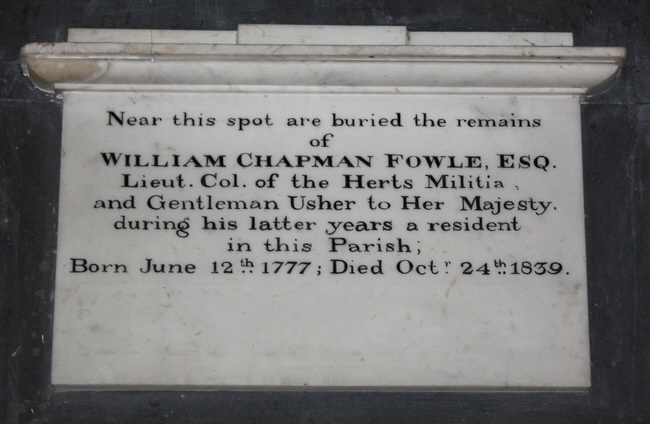 Near this spot are buried the remains
of
WILLIAM CHAPMAN FOWLE, ESQ.
Lieut. Col. of the Herts Militia,
and Gentleman Usher to Her Majesty.
during his latter years a resident
in this Parish;
Born June 12th 1777; Died Octr 24th 1839.